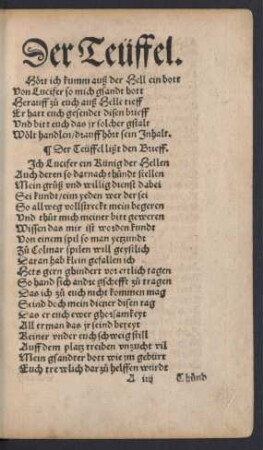 Der Teüffel.
Hört ich kumm auß der Hell ein bott
Von Lucifer so mich gsandt hott
Herauff zů euch auß Helle tieff
Er hatt euch gesendet disen brieff
Vnd bitt euch das jr solcher gstalt
Wölt handlen / drauff hört sein Inhalt.
¶ Der Teüffel lißt den Brieff.
Ich Lucifer ein Künig der Hellen
Auch deren so darnach thůndt stellen
Mein grůß vnd willig dienst dabei
Sei kundt / eim yeden wer der sei
So allweg vollstreckt mein begeren
Vnd thůt mich meiner bitt geweren
Wissen das mir ist worden kundt
Von einem spil so man yetzundt
Zů Colmar spilen will geystlich
Daran hab klein gefallen ich
Hets gern ghindert vor ettlich tagen
So hand sich andre gschefft zů tragen
Das ich zů euch nicht kommen mag
Seind doch mein diener disen tag
Das er euch ewer ghorsamkeyt
All erman das jr seind bereyt
Keiner vnder euch schweig still
Auff dem platz treiben vnzucht vil
Mein gsandter bott wie jm gebürt
Euch trewlich darzů helffen würdt
A iiij Thůnd